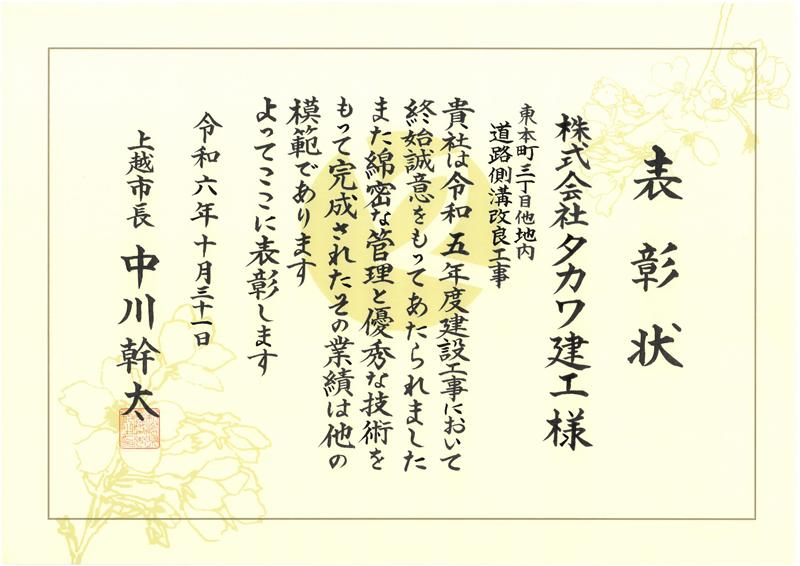 表彰状
株式会社タカワ建工様
東本町三丁目他地内
道路側溝改良工事
貴社は令和五年度建設工事において
終始誠意をもってあたられました
また綿密な管理と優秀な技術を
もって完成されたその業績は他の
模範であります
よってここに表彰します
令和六年十月三十一日
上越市長 中川幹太